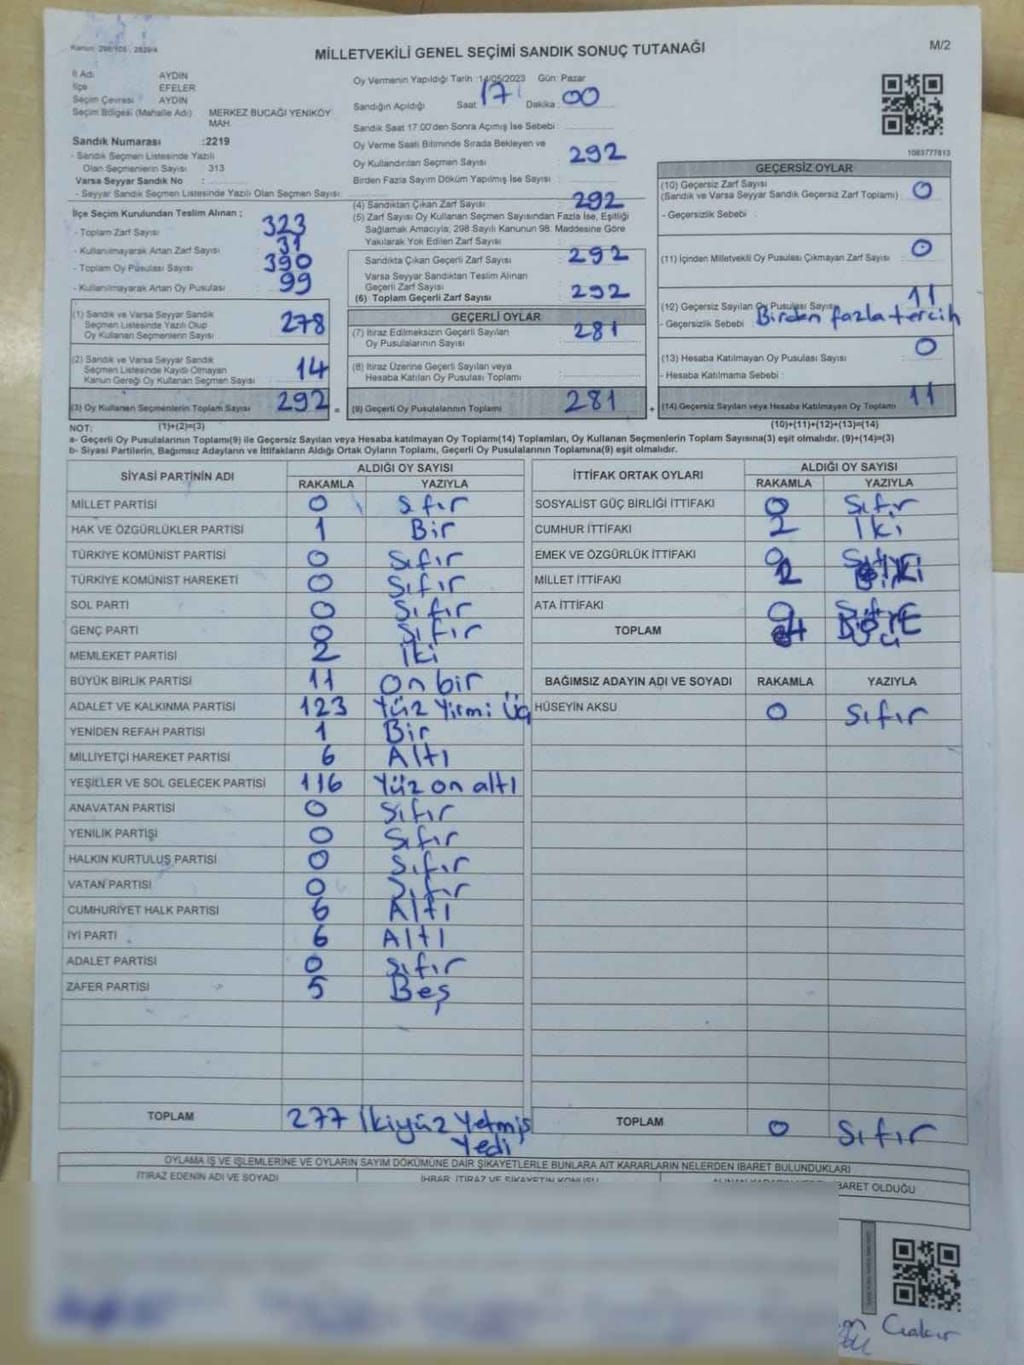 Kanun: 298/105, 2839/4
MİLLETVEKİLİ GENEL SEÇİMİ SANDIK SONUÇ TUTANAĞI
M/2
İl Adı AYDIN
İlçe EFELER
Seçim Çevresi AYDIN
Seçim Bölgesi (Mahalle Adı) MERKEZ BUCAĞI YENİKÖY MAH.
Sandık Numarası :2219
- Sandık Seçmen Listesinde Yazılı
Olan Seçmenlerin Sayısı 313
Varsa Seyyar Sandık No :
- Seyyar Sandık Seçmen Listesinde Yazılı Olan Seçmen Sayısı:
Oy Vermenin Yapıldığı Tarih :14/05/2023 Gün: Pazar
Sandığın Açıldığı Saat : 17 Dakika : 00
Sandık Saat 17:00'den Sonra Açımış İse Sebebi :
Oy Verme Saati Bitiminde Sırada Bekleyen ve
Oy Kullandırılan Seçmen Sayısı 292
Birden Fazla Sayım Döküm Yapılmış İse Sayısı :
1083777813
İlçe Seçim Kurulundan Teslim Alınan ;
- Toplam Zarf Sayısı 323
- Kullanılmayarak Artan Zarf Sayısı 31
- Toplam Oy Pusulası Sayısı 390
- Kullanılmayarak Artan Oy Pusulası 99
(1) Sandık ve Varsa Seyyar Sandık
Seçmen Listesinde Yazılı Olup
Oy Kullanan Seçmenlerin Sayısı 278
(2) Sandık ve Varsa Seyyar Sandık
Seçmen Listesinde Kayıdı Olmayan
Kanun Gereği Oy Kullanan Seçmen Sayısı 14
(3) Oy Kullanan Seçmenlerin Toplam Sayısı 292 =
(1)+(2)=(3)
(4) Sandıktan Çıkan Zarf Sayısı 292
(5) Zarf Sayısı Oy Kullanan Seçmen Sayısından Fazla İse, Eşitliği
Sağlamak Amacıyla, 298 Sayılı Kanunun 98. Maddesine Göre
Yakılarak Yok Edilen Zarf Sayısı
Sandıkta Çıkan Geçerli Zarf Sayısı 292
Varsa Seyyar Sandıktan Teslim Alınan
Geçerli Zarf Sayısı
(6) Toplam Geçerli Zarf Sayısı 292
GEÇERLİ OYLAR
(7) İtiraz Edilmeksizin Geçerli Sayılan
Oy Pusulalarının Sayısı 281
(8) İtiraz Üzerine Geçerli Sayılan veya
Hesaba Katılan Oy Pusulası Toplamı
(9) Geçerli Oy Pusulalarının Toplamı 281 +
GEÇERSİZ OYLAR
(10) Geçersiz Zarf Sayısı
(Sandık ve Varsa Seyyar Sandık Geçersiz Zarf Toplamı) 0
- Geçersizlik Sebebi :
(11) İçinden Milletvekili Oy Pusulası Çıkmayan Zarf Sayısı 0
(12) Geçersiz Sayılan Oy Pusulası Sayısı 11
- Geçersizlik Sebebi : Birden fazla tercih
(13) Hesaba Katılmayan Oy Pusulası Sayısı 0
- Hesaba Katılmama Sebebi :
(14) Geçersiz Sayılan veya Hesaba Katılmayan Oy Toplamı 11
(10)+(11)+(12)+(13)=(14)
NOT:
a- Geçerli Oy Pusulalarının Toplamı(9) ile Geçersiz Sayılan veya Hesaba katılmayan Oy Toplamı(14) Toplamları, Oy Kullanan Seçmenlerin Toplam Sayısına(3) eşit olmalıdır. (9)+(14)=(3)
b- Siyasi Partilerin, Bağımsız Adayların ve İttifakların Aldığı Ortak Oyların Toplamı, Geçerli Oy Pusulalarının Toplamına(9) eşit olmalıdır.
SİYASİ PARTİNİN ADI ALDIĞI OY SAYISI
RAKAMLA YAZIYLA
MİLLET PARTİSİ 0 Sıfır
HAK VE ÖZGÜRLÜKLER PARTİSİ 1 Bir
TÜRKİYE KOMÜNİST PARTİSİ 0 Sıfır
TÜRKİYE KOMÜNİST HAREKETİ 0 Sıfır
SOL PARTİ 0 Sıfır
GENÇ PARTİ 0 Sıfır
MEMLEKET PARTİSİ 2 İki
BÜYÜK BİRLİK PARTİSİ 11 On bir
ADALET VE KALKINMA PARTİSİ 123 Yüz Yirmi Üç
YENİDEN REFAH PARTİSİ 1 Bir
MİLLİYETÇİ HAREKET PARTİSİ 6 Altı
YEŞİLLER VE SOL GELECEK PARTİSİ 116 Yüz on altı
ANAVATAN PARTİSİ 0 Sıfır
YENİLİK PARTİSİ 0 Sıfır
HALKIN KURTULUŞ PARTİSİ 0 Sıfır
VATAN PARTİSİ 0 Sıfır
CUMHURİYET HALK PARTİSİ 6 Altı
İYİ PARTİ 6 Altı
ADALET PARTİSİ 0 Sıfır
ZAFER PARTİSİ 5 Beş
TOPLAM 277 İkiyüz Yetmiş Yedi
İTTİFAK ORTAK OYLARI ALDIĞI OY SAYISI
RAKAMLA YAZIYLA
SOSYALİST GÜÇ BİRLİĞİ İTTİFAKI 0 Sıfır
CUMHUR İTTİFAKI 2 İki
EMEK VE ÖZGÜRLÜK İTTİFAKI 0 Sıfır
MİLLET İTTİFAKI 2
ATA İTTİFAKI 0 Sıfır
TOPLAM 4
BAĞIMSIZ ADAYIN ADI VE SOYADI RAKAMLA YAZIYLA
HÜSEYİN AKSU 0 Sıfır
TOPLAM 0 Sıfır
OYLAMA İŞ VE İŞLEMLERİNE VE OYLARIN SAYIM DÖKÜMÜNE DAİR ŞİKAYETLERLE BUNLARA AİT KARARLARIN NELERDEN İBARET BULUNDUKLARI
İTİRAZ EDENİN ADI VE SOYADI İHBAR, İTİRAZ VE ŞİKAYETİN KONUSU
BARET OLDUĞU